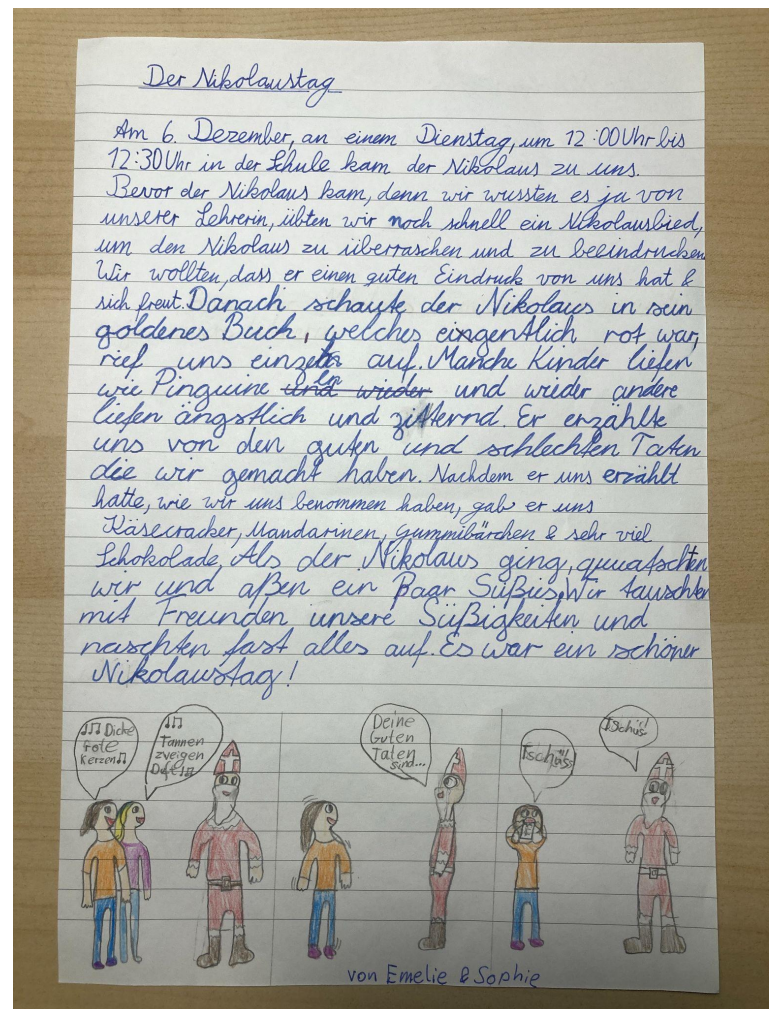 Der Nikolaustag
Am 6. Dezember, an einem Dienstag, um 12:00 Uhr bis
12:30 Uhr in der Schule kam der Nikolaus zu uns.
Bevor der Nikolaus kam, denn wir wussten es ja von
unserer Lehrerin, übten wir noch schnell ein Nikolauslied,
um den Nikolaus zu überraschen und zu beeindrucken
Wir wollten, dass er einen guten Eindruck von uns hat &
sich freut. Danach schaute der Nikolaus in sein
goldenes Buch, welches eingentlich rot war,
rief uns einzeln auf. Manche Kinder liefen
wie Pinguine und wieder und wieder andere
liefen ängstlich und zitternd. Er erzählte
uns von den guten und schlechten Taten
die wir gemacht haben. Nachdem er uns erzählt
hatte, wie wir uns benommen haben, gab er uns
Käsecracker, Mandarinen, Gummibärchen & sehr viel
Schokolade. Als der Nikolaus ging, quuatschten
wir und aßen ein Paar Süßis. Wir tauschten
mit Freunden unsere Süßigkeiten und
naschten fast alles auf. Es war ein schöner
Nikolaustag!
♫♫ Dicke
rote
Kerzen♫
♫♫
Tannen
zweigen
Duft♫
Deine
Guten
Taten
sind...
Tschüss!!
Tschüs!!
von Emelie & Sophie